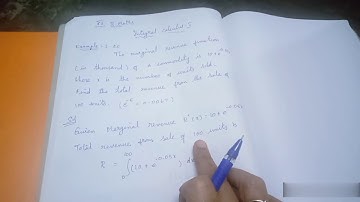 II B Maths
Integral Calculus I
Example: 3.20
The marginal revenue function
(in thousand) of a commodity is 10 + e
Here x is the number of units sold.
Find the total revenue from the sale of
100 units (e⁻⁵ = 0.0067)
Sol
Given Marginal revenue R'(x) = 10 + e^-0.05x
Total revenue from sale of 100 units is
R = ∫ (10 + e^-0.05x) dx